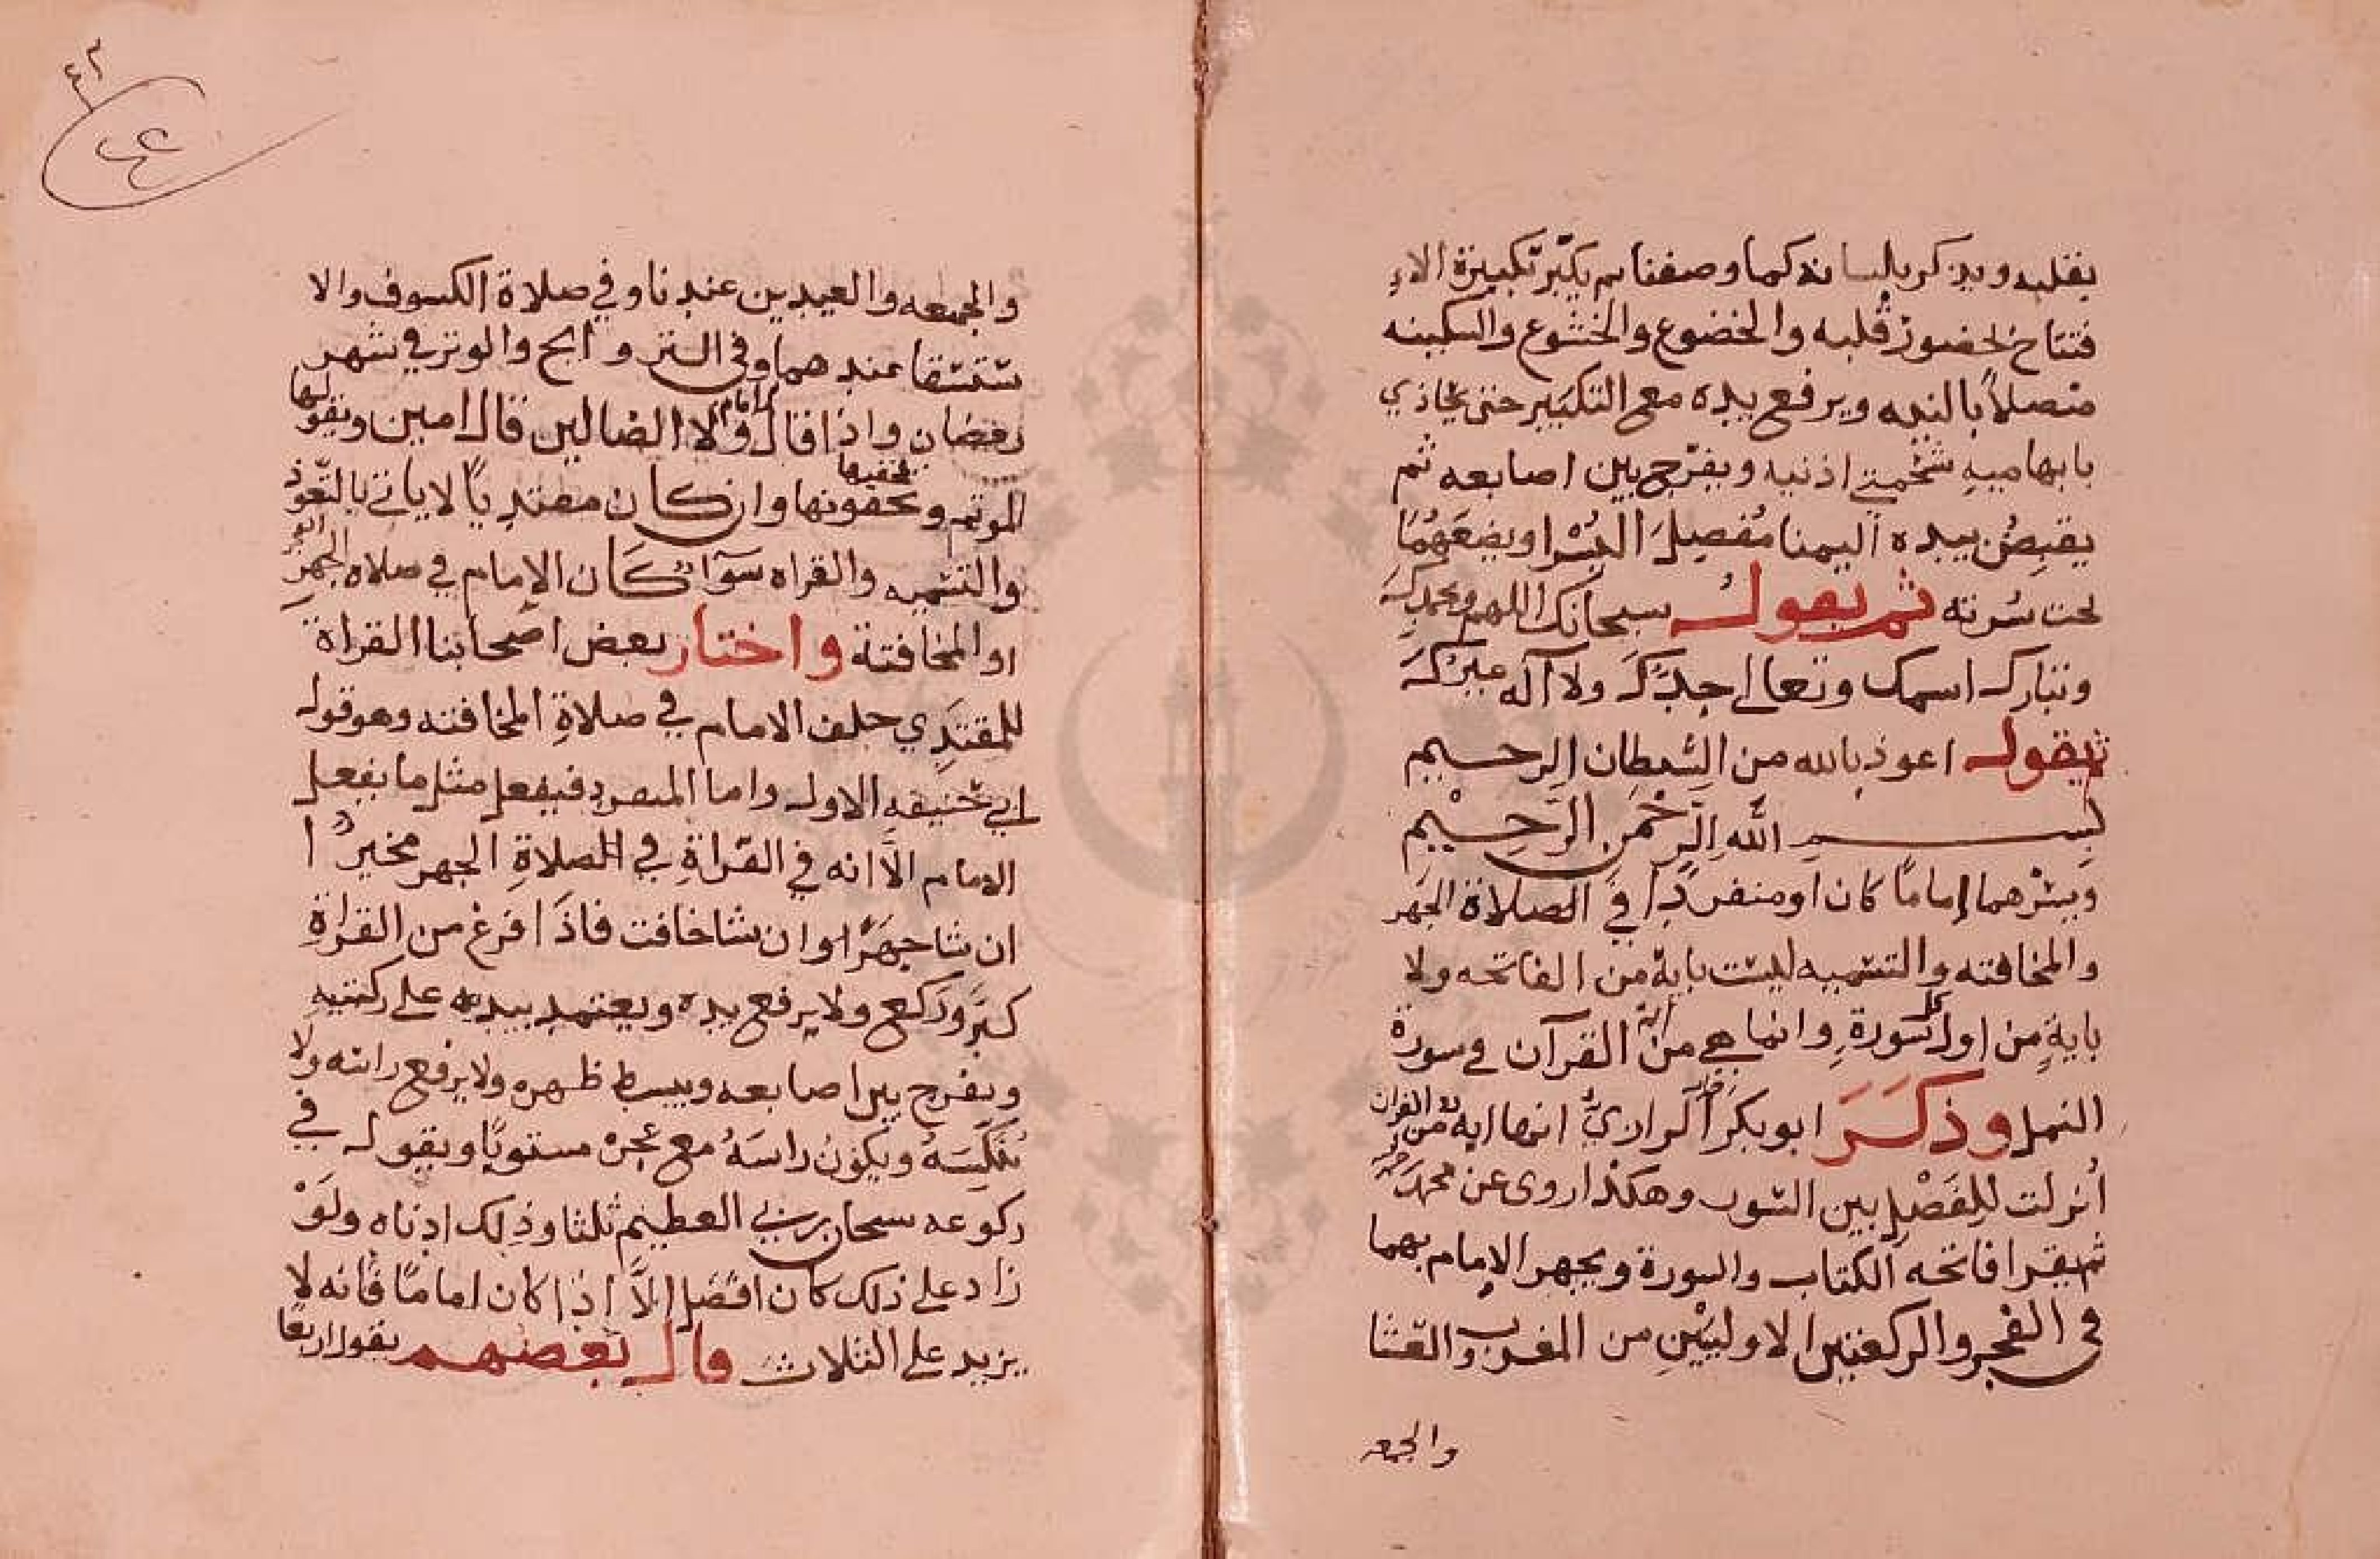 بقلبه ويذكر بلسانه كما وصفنا ثم يكبّر تكبيرة الا
فتتاح بحضور قلبه والخضوع والخشوع والسكينه
متصلاً بالنيه ويرفع يده مع التكبير حتى يحاذي
بابهاميه شحمتي اذنيه ويفرّج بين اصابعه ثم
يقبض بيده اليمنا مفصل اليسرا ويضعهما
تحت سرته ثم يقول سبحانك اللهم وبحمدك
وتبارك اسمك وتعالى جدك ولا اله غيرك
ثم يقول اعوذ بالله من الشيطان الرجيم
بسم الله الرحمن الرحيم
ويسرهما إماما كان او منفردا في الصلاة الجهر
والمخافته والتسميه ليست باية من الفاتحه ولا
باية من اول كل سورة وانما هي اية من القرآن في سورة
النمل وذكر ابو بكر الرازي انها اية من القران
أنزلت للفصل بين السور وهكذا روى عن محمد
ثم يقرا فاتحه الكتاب والسورة ويجهر الإمام بهما
في الفجر والركعتين الاوليين من المغرب والعشا
والجمعه
٤٣
٤٤
والجمعه والعيدين عندنا وفي صلاة الكسوف والا
ستسقا عندهما وفي التراويح والوتر في شهر
رمضان واذا قال الامام ولا الضالين قال امين ويقولها
الموتم ويخفونها يخفيها وان كان مقتديا لا ياتي بالتعوذ
والتسميه والقراه سوآء كان الإمام في صلاه الجهر
او المخافتة واختار بعض اصحابنا القراة
للمقتدي خلف الامام في صلاة المخافته وهو قول
ابي حنيفه الاول واما المنفرد فيفعل مثل ما يفعل
الامام الا انه في القراة في الصلاة الجهر مخير
ان شا جهرا وان شا خافت فاذا فرغ من القراة
كبر وركع ولا يرفع يده ويعتمد بيديه على ركبتيه
ويفرج بين اصابعه ويبسط ظهره ولا يرفع راسه ولا
ينكسه ويكون راسه مع عجزه مستويا ويقول في
ركوعه سبحان ربي العظيم ثلثا وذلك ادناه ولو
زاد على ذلك كان افضل إلاّ اذا كان اماما فانه لا
يزيد على الثلاث قال بعضهم يقول اربعا